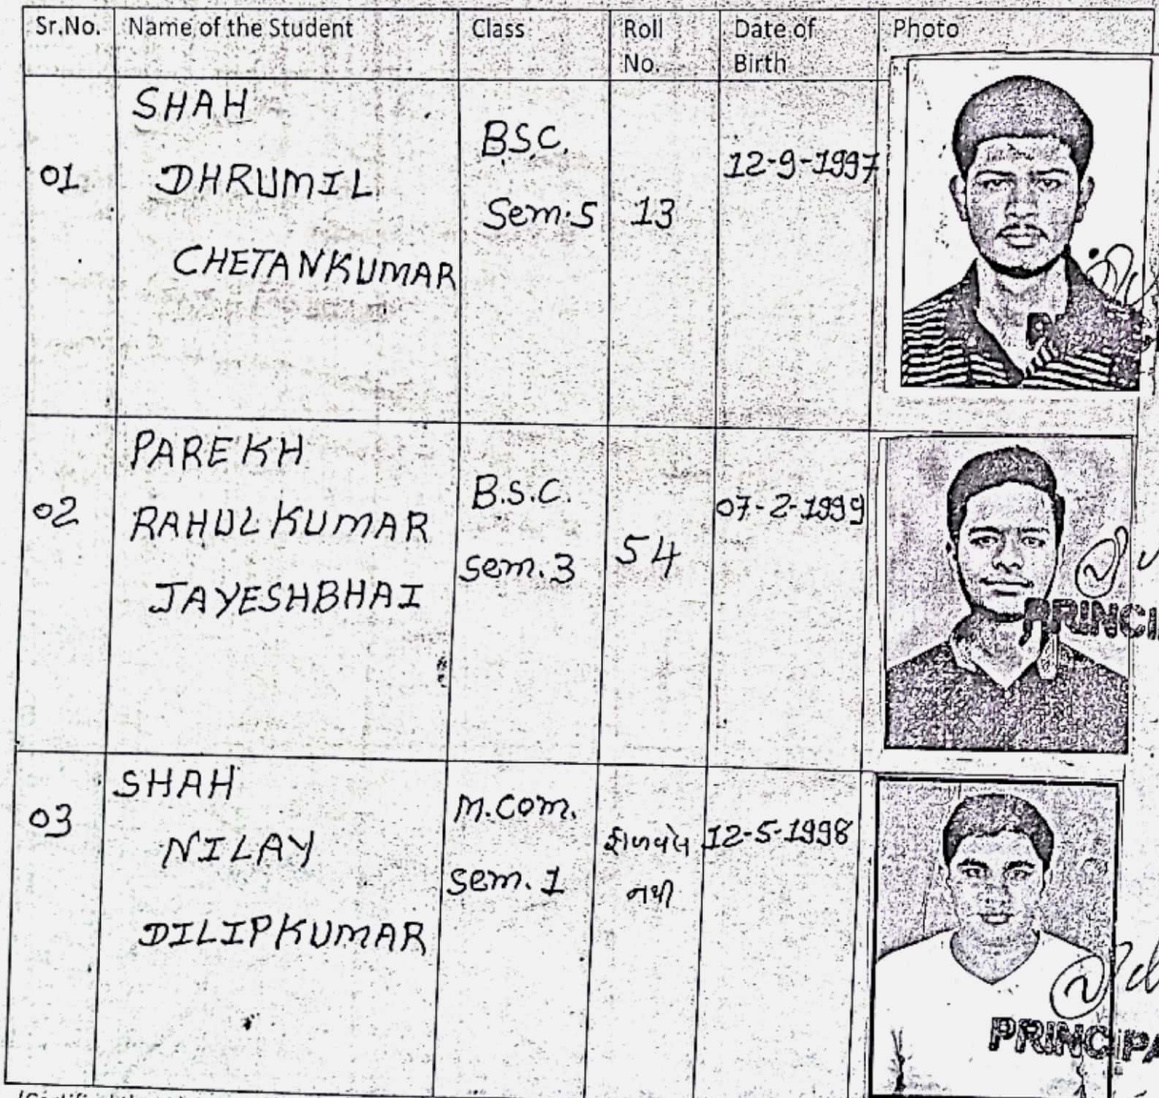 Sr.No. Name of the Student Class Roll No. Date of Birth Photo
01 SHAH DHRUMIL CHETANKUMAR B.SC. Sem.5 13 12-9-1997
02 PAREKH RAHULKUMAR JAYESHBHAI B.S.C. Sem.3 54 07-2-1999
PRINCI
03 SHAH NILAY DILIPKUMAR M.COM. Sem.1 નથી 12-5-1998
PRINCIPA